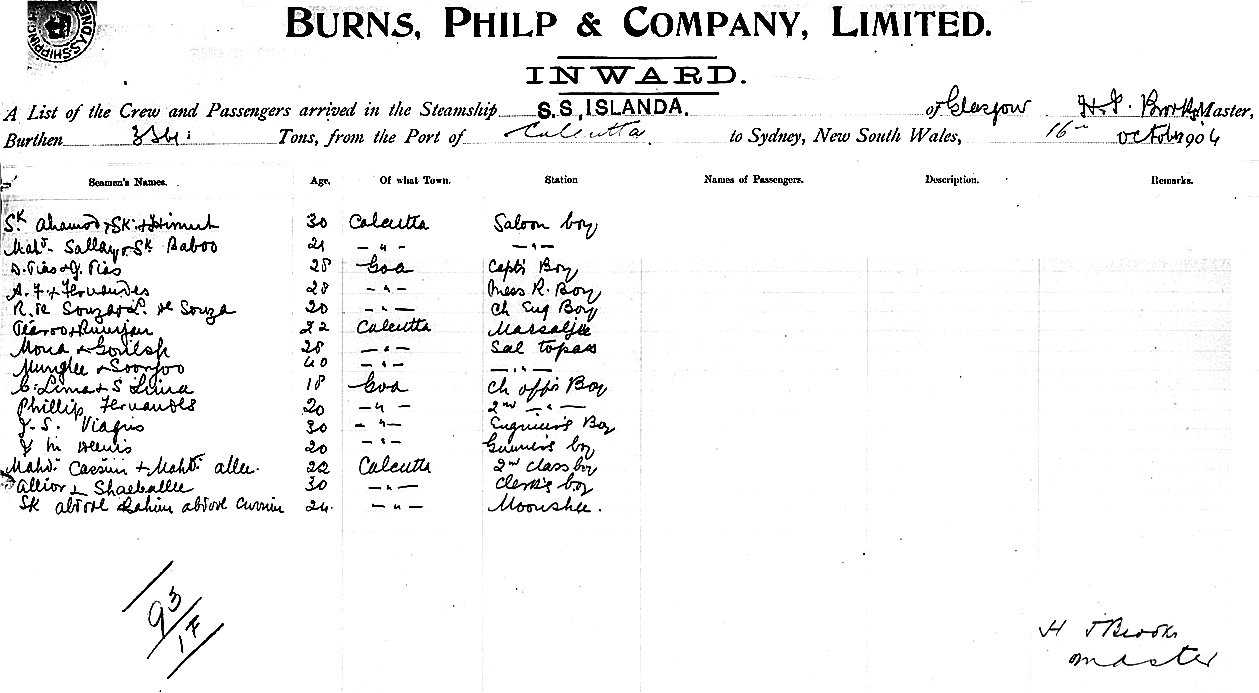 BURNS, PHILP & COMPANY, LIMITED.
INWARD.
A List of the Crew and Passengers arrived in the Steamship S.S, ISLANDA. of Glasgow H. J. Brooks Master,
Burthen Tons, from the Port of Calcutta to Sydney, New South Wales, 16th October 1904
Seamen's Names. Age. Of what Town. Station Names of Passengers. Description. Remarks.
Sk Ahamod & Sk 30 Calcutta Saloon boy
Mahd. Sallay & Sk Baboo 21 — " — — " —
D. Dias & J. Dias 28 Goa Capts Boy
A. F & Fernandes 28 — " — Mess R. Boy
R. de Souza & L. de Souza 20 — " — Ch Eng Boy
22 Calcutta Massaljee
28 — " — Sal topass
Munglee & Soorjoo 40 — " — — " —
C. Lima & S Lima 18 Goa Ch offrs Boy
Phillip Fernandes 20 — " — 2nd — " —
J. S. 30 — " — Engineer's Boy
20 — " — Gunner's boy
Mahd. Cassim & Mahd. allee. 22 Calcutta 2nd class boy
30 — " — Clerk's boy
Sk abdool Rahim abdool 24. — " — Moonshee.
93
1F
H J Brooks
master